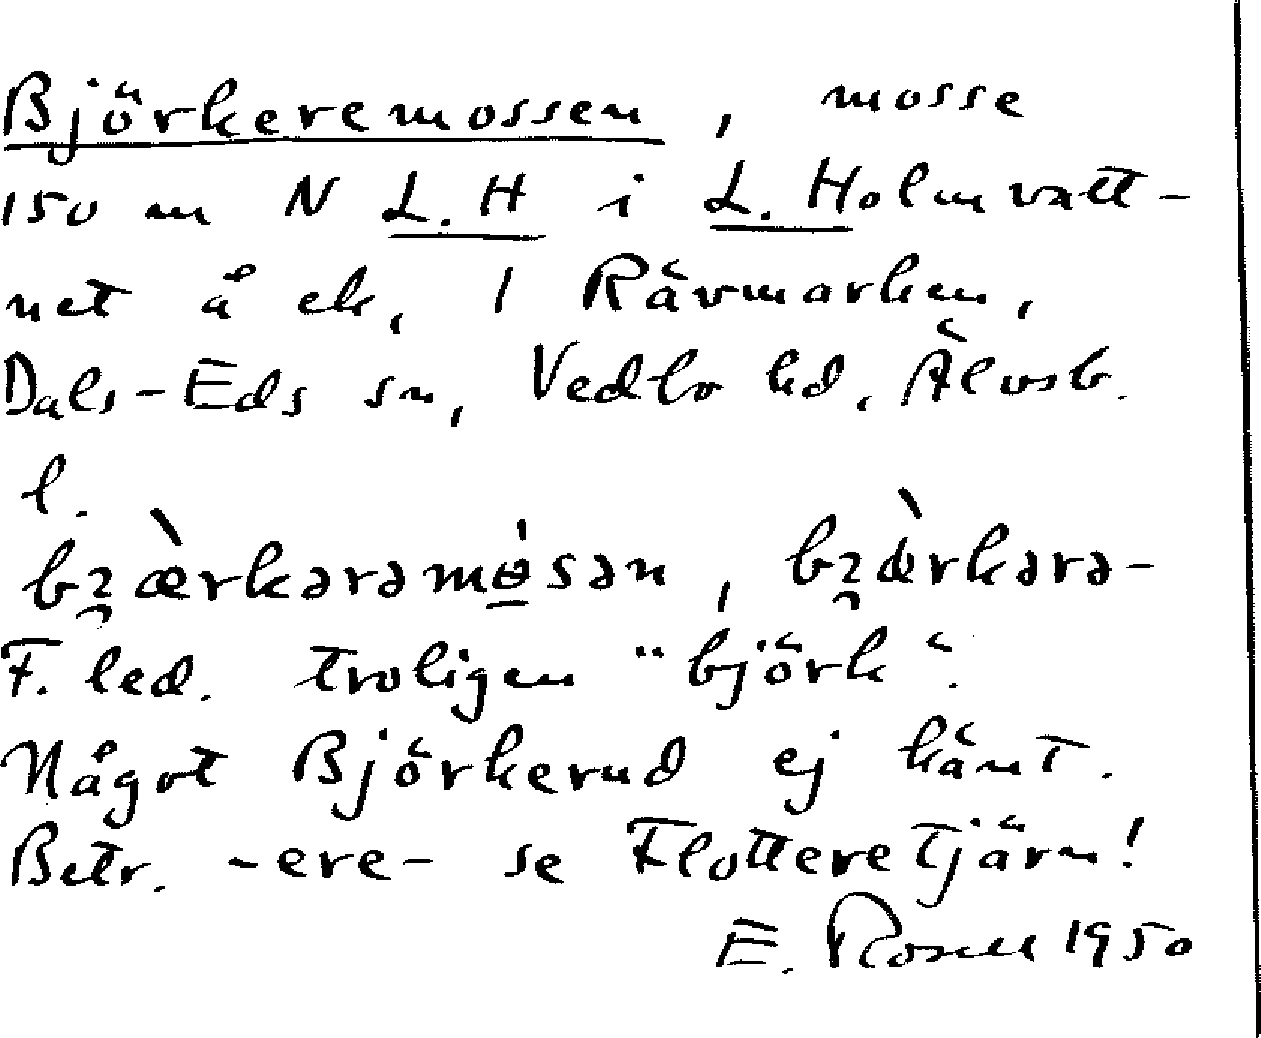 Björkeremossen, mosse
150 m N L. H i L. Holmvatt-
net å ek, 1 Rävmarken,
Dals-Eds sn, Vedbo hd, Älvsb.
l.
bȷæ̀rkərəmɵ̍sən, bȷæ̀rkərə-
F. led. troligen "björk".
Något Björkerud ej känt.
Betr. -ere- se Flotteretjärn!
E. Rosell 1950